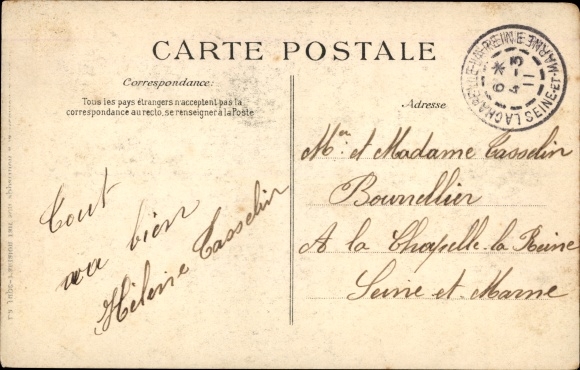 CARTE POSTALE
Correspondance:
Tous les pays étrangers n'acceptent pas la
correspondance au recto, se renseigner à la Poste
Adresse
6 *
4-3
11
SEINE-ET-MARNE
Tout
va bien
Hélène Tasselin
Mr. et Madame Tasselin
Bourrellier
A la Chapelle la Reine
Seine et Marne